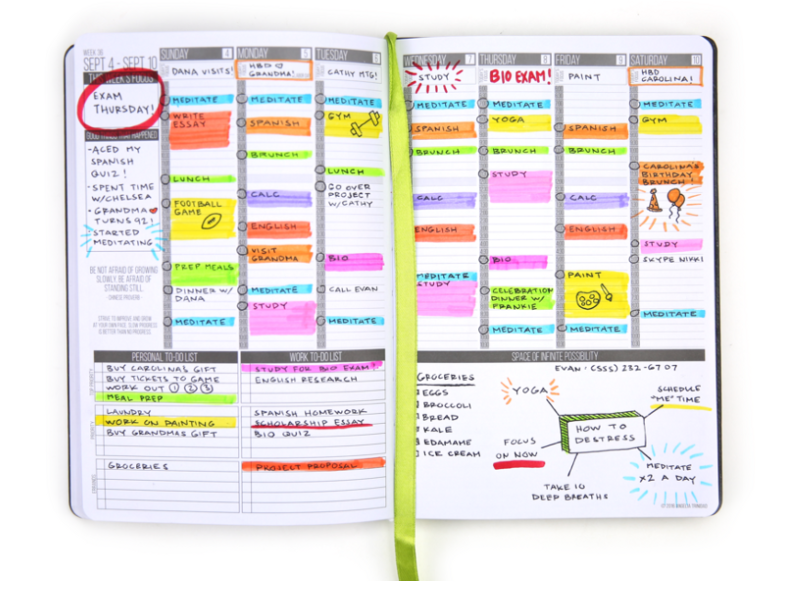 WEEK 36
SEPT 4 - SEPT 10
THIS WEEK'S FOCUS
EXAM
THURSDAY!
GOOD THINGS THAT HAPPENED
-ACED MY
SPANISH
QUIZ!
-SPENT TIME
W/CHELSEA
-GRANDMA
TURNS 92!
STARTED
MEDITATING
BE NOT AFRAID OF GROWING
SLOWLY, BE AFRAID OF
STANDING STILL.
- CHINESE PROVERB -
STRIVE TO IMPROVE AND GROW
AT YOUR OWN PACE. SLOW PROGRESS
IS BETTER THAN NO PROGRESS.
SUNDAY 4
DANA VISITS!
MEDITATE
WRITE
ESSAY
LUNCH
FOOTBALL
GAME
PREP MEALS
DINNER W/
DANA
MEDITATE
MONDAY 5
HBD ♡
GRANDMA!
MEDITATE
SPANISH
BRUNCH
CALC
ENGLISH
VISIT
GRANDMA
MEDITATE
STUDY
TUESDAY 6
CATHY MTG!
MEDITATE
GYM
LUNCH
GO OVER
PROJECT
W/CATHY
BIO
CALL EVAN
MEDITATE
PERSONAL TO-DO LIST
BUY CAROLINA'S GIFT
BUY TICKETS TO GAME
WORK OUT ① ② ③
MEAL PREP
LAUNDRY
WORK ON PAINTING
BUY GRANDMAS GIFT
GROCERIES
WORK TO-DO LIST
STUDY FOR BIO EXAM!
ENGLISH RESEARCH
SPANISH HOMEWORK
SCHOLARSHIP ESSAY
BIO QUIZ
PROJECT PROPOSAL
WEDNESDAY 7
STUDY
MEDITATE
SPANISH
BRUNCH
CALC
ENGLISH
MEDITATE
STUDY
THURSDAY 8
BIO EXAM!
MEDITATE
YOGA
BRUNCH
STUDY
BIO
CELEBRATION
DINNER W/
FRANKIE
MEDITATE
FRIDAY 9
PAINT
SPANISH
BRUNCH
CALC
ENGLISH
PAINT
MEDITATE
SATURDAY 10
HBD
CAROLINA!
MEDITATE
GYM
CAROLINA'S
BIRTHDAY
BRUNCH!
STUDY
SKYPE NIKKI
MEDITATE
SPACE OF INFINITE POSSIBILITY
EVAN · (555) 232-6707
GROCERIES
EGGS
BROCCOLI
BREAD
KALE
EDAMAME
ICE CREAM
YOGA
SCHEDULE
"ME" TIME
HOW TO
DESTRESS
FOCUS
ON NOW
MEDITATE
X2 A DAY
TAKE 10
DEEP BREATHS